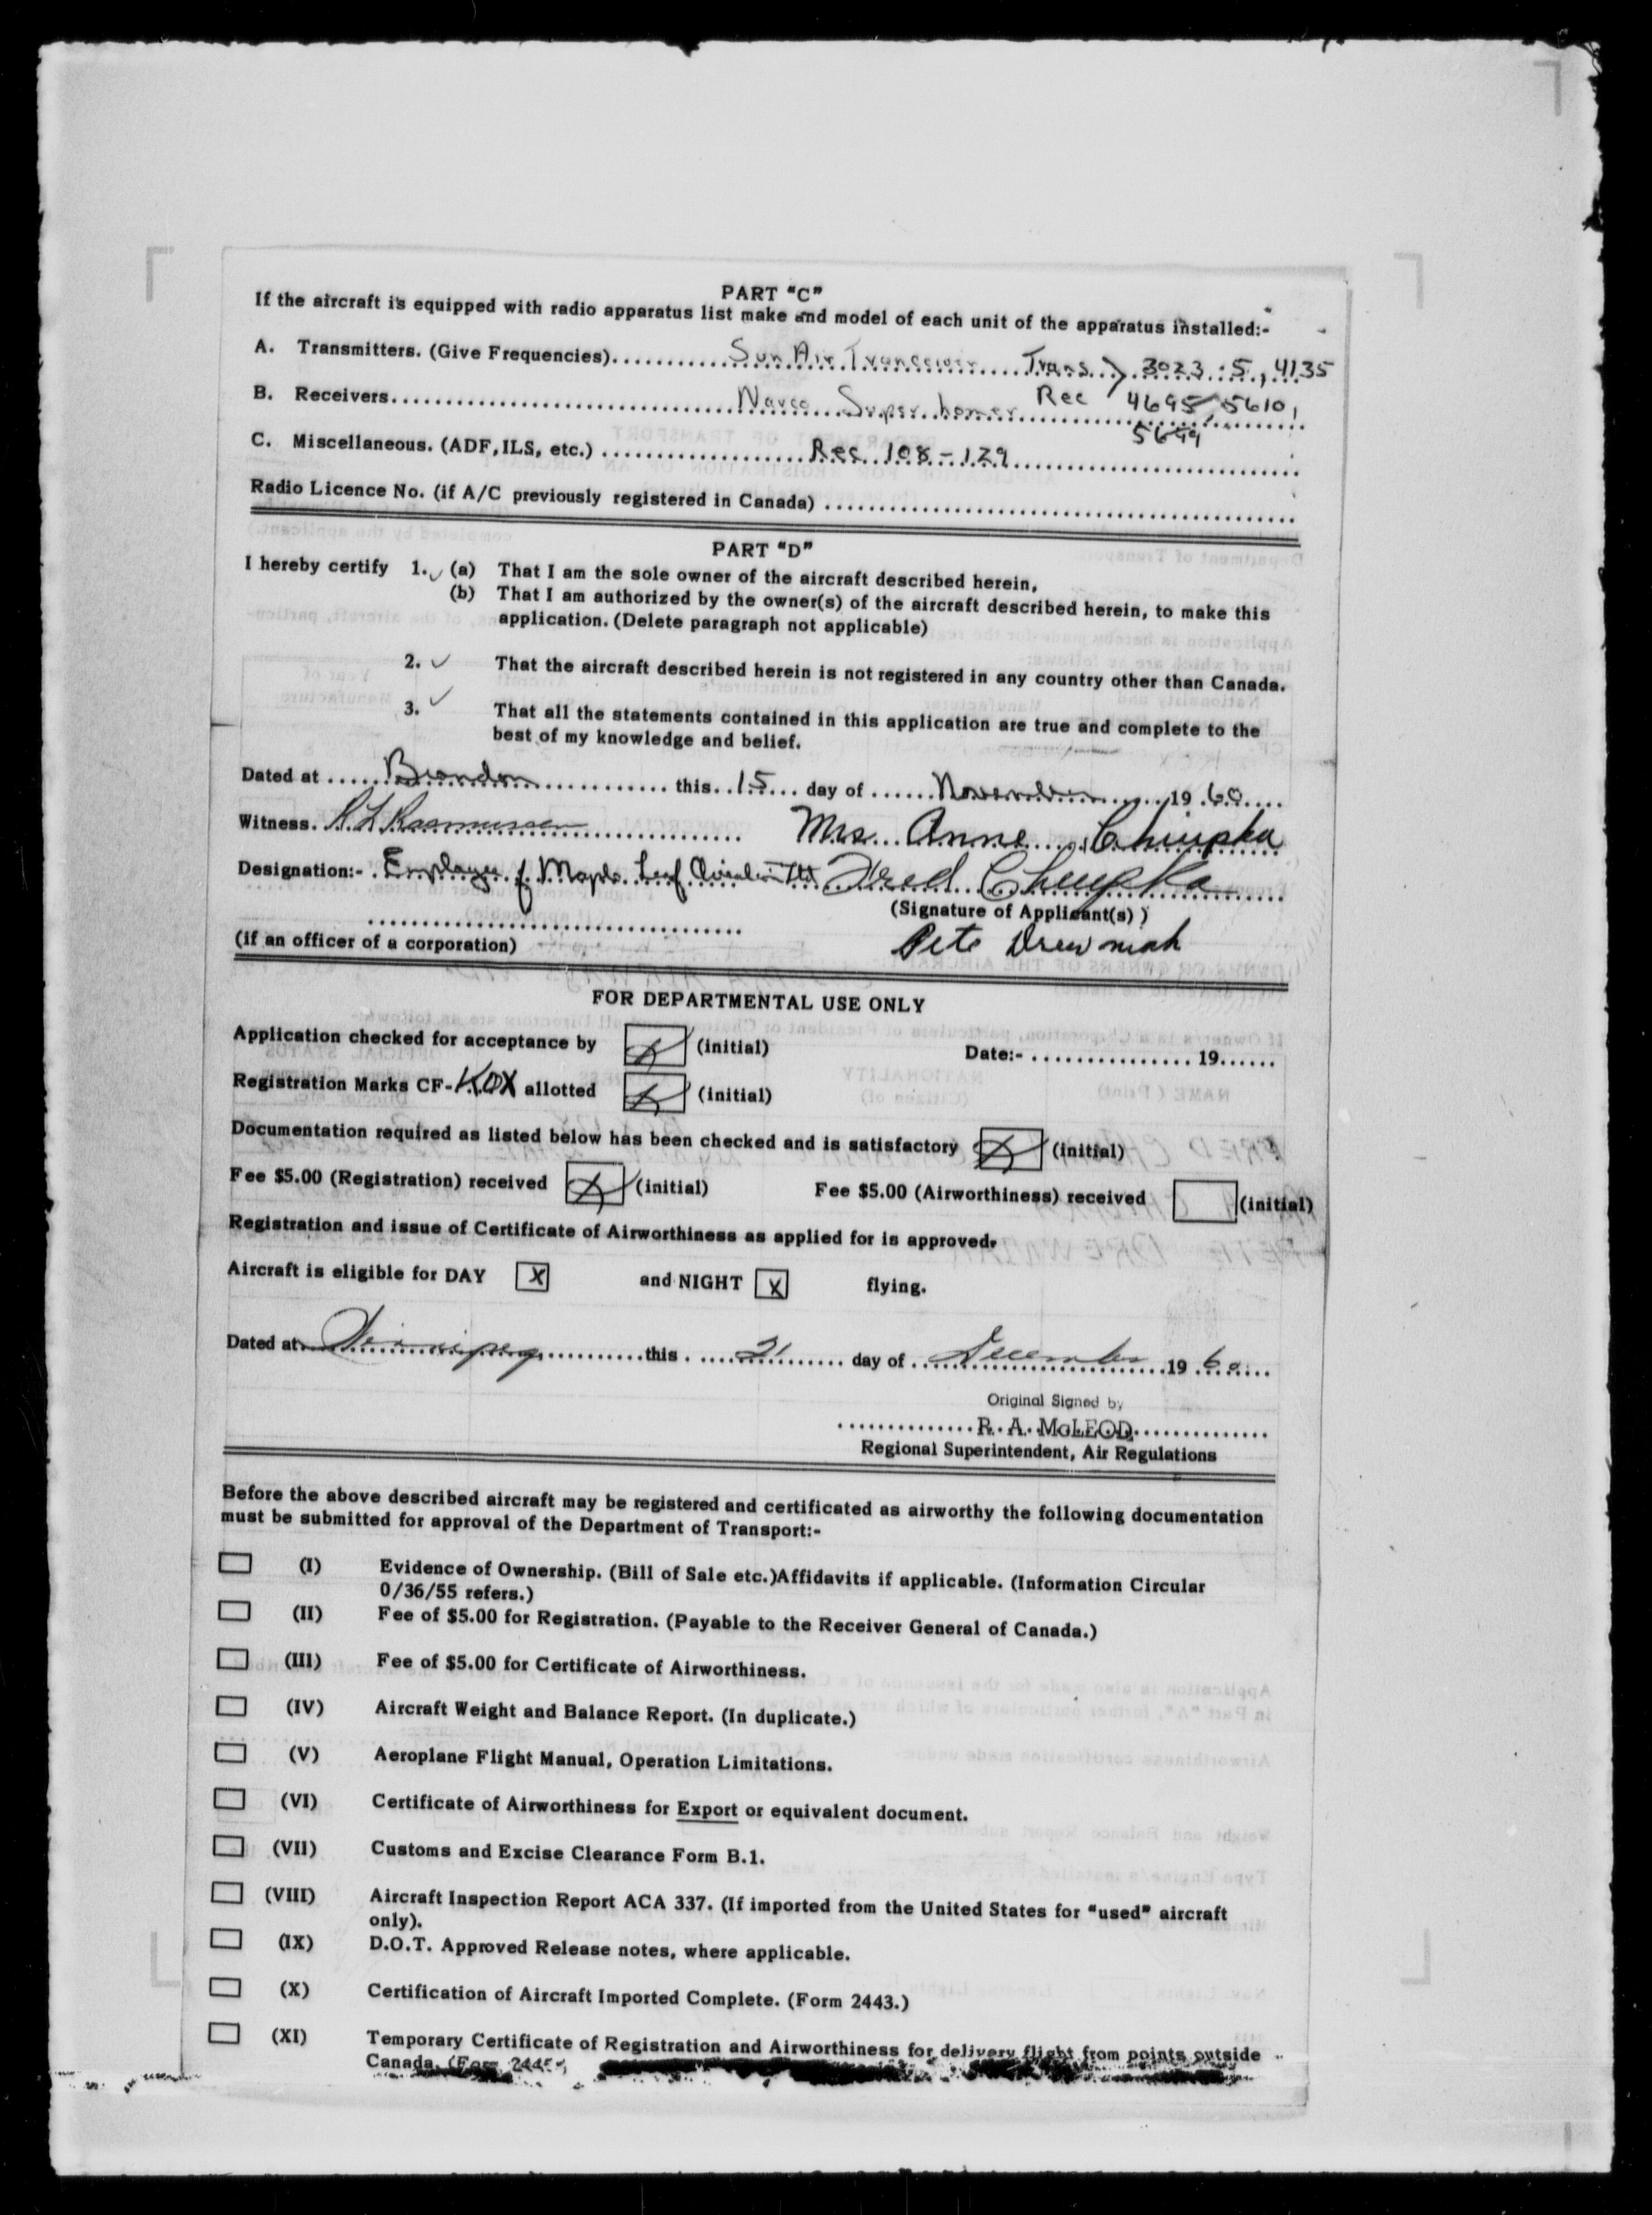 PART "C"
If the aircraft is equipped with radio apparatus list make and model of each unit of the apparatus installed:-
A. Transmitters. (Give Frequencies)..... Sun Air Tranceiver Trans > 3023.5, 4135
B. Receivers..... Narco Super homer Rec 4695, 5610,
5699
C. Miscellaneous. (ADF, ILS, etc.) ..... Rec 108-129
Radio Licence No. (if A/C previously registered in Canada) .....
PART "D"
I hereby certify 1. ✓ (a) That I am the sole owner of the aircraft described herein,
(b) That I am authorized by the owner(s) of the aircraft described herein, to make this
application. (Delete paragraph not applicable)
2. ✓ That the aircraft described herein is not registered in any country other than Canada.
3. ✓ That all the statements contained in this application are true and complete to the
best of my knowledge and belief.
Dated at ..... Brandon ..... this 15 day of ..... November ..... 19 60
Witness. R L Rasmussen Mrs. Anne Chiupka
Designation:- Employee of Maple Leaf Aviation Ltd Fred Chiupka
(Signature of Applicant(s))
(if an officer of a corporation) Pete Drewniak
FOR DEPARTMENTAL USE ONLY
Application checked for acceptance by (initial) Date:- ..... 19......
Registration Marks CF-KOX allotted (initial)
Documentation required as listed below has been checked and is satisfactory (initial)
Fee $5.00 (Registration) received (initial) Fee $5.00 (Airworthiness) received (initial)
Registration and issue of Certificate of Airworthiness as applied for is approved.
Aircraft is eligible for DAY X and NIGHT X flying.
Dated at Winnipeg ..... this ..... 21 ..... day of December 19 60
Original Signed by
R. A. McLEOD
Regional Superintendent, Air Regulations
Before the above described aircraft may be registered and certificated as airworthy the following documentation
must be submitted for approval of the Department of Transport:-
(I) Evidence of Ownership. (Bill of Sale etc.)Affidavits if applicable. (Information Circular
0/36/55 refers.)
(II) Fee of $5.00 for Registration. (Payable to the Receiver General of Canada.)
(III) Fee of $5.00 for Certificate of Airworthiness.
(IV) Aircraft Weight and Balance Report. (In duplicate.)
(V) Aeroplane Flight Manual, Operation Limitations.
(VI) Certificate of Airworthiness for Export or equivalent document.
(VII) Customs and Excise Clearance Form B.1.
(VIII) Aircraft Inspection Report ACA 337. (If imported from the United States for "used" aircraft
only).
(IX) D.O.T. Approved Release notes, where applicable.
(X) Certification of Aircraft Imported Complete. (Form 2443.)
(XI) Temporary Certificate of Registration and Airworthiness for delivery flight from points outside
Canada. (Form